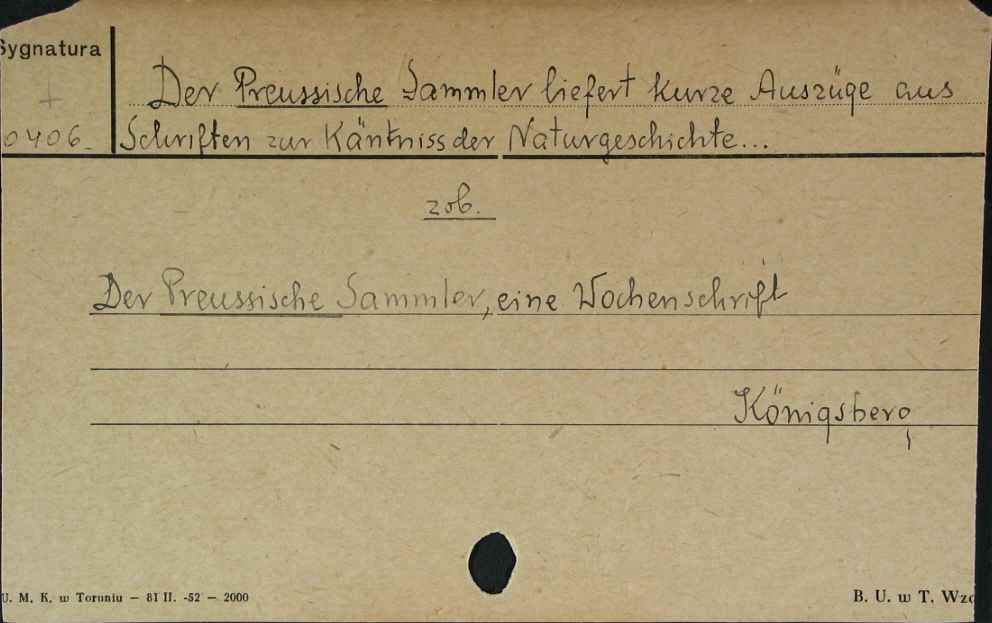 Sygnatura
+
0406.
Der Preussische Sammler liefert kurze Auszüge aus
Schriften zur Käntniss der Naturgeschichte...
zob.
Der Preussische Sammler, eine Wochenschrift
Königsberg
U. M. K. w Toruniu — 81 II. -52 — 2000
B. U. w T. Wzó